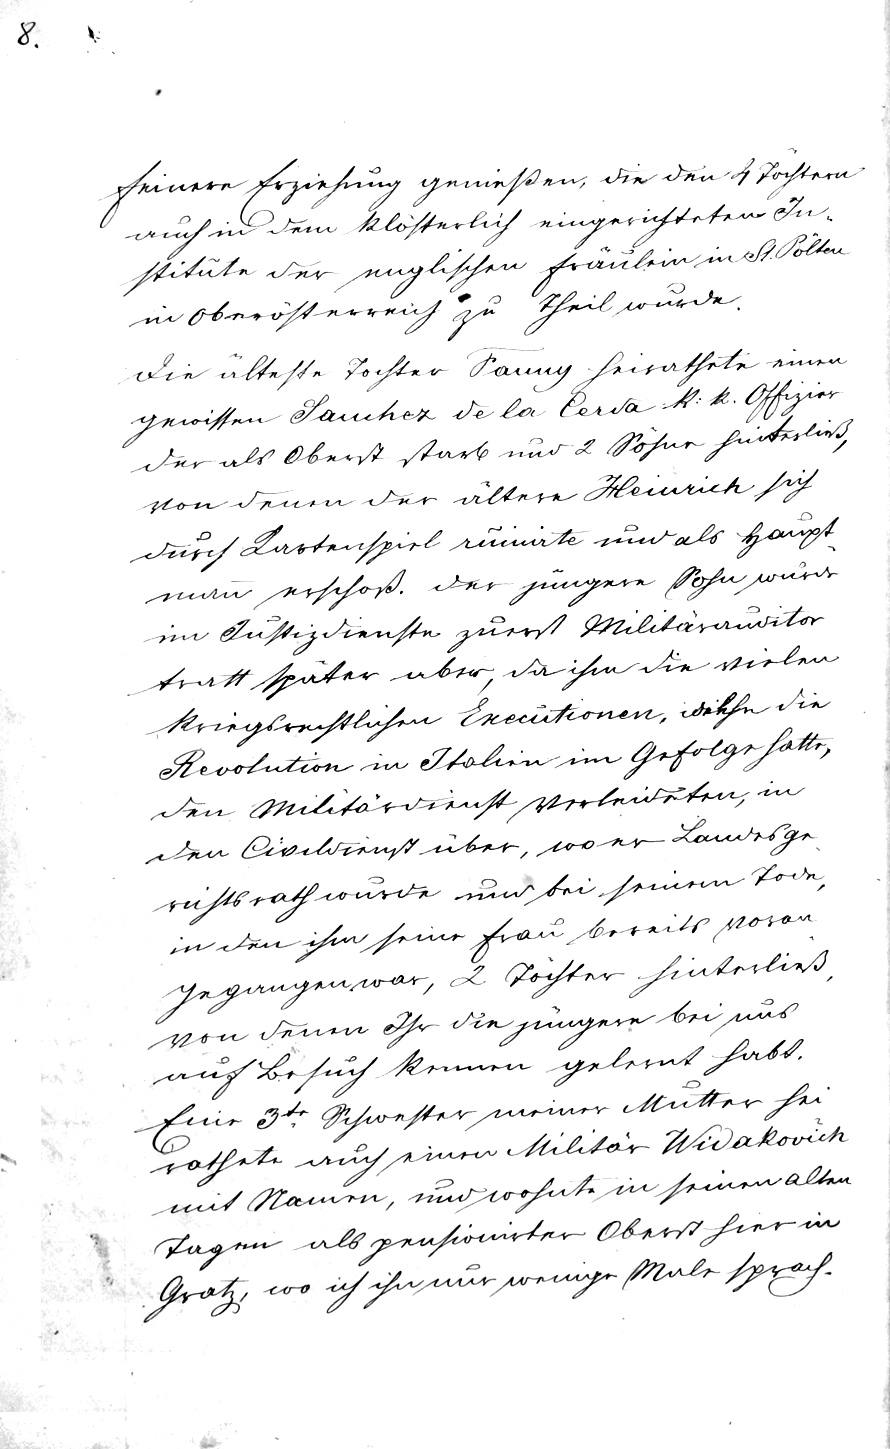 8.
feinere Erziehung genießen, die den 4 Töchtern
auch in dem klösterlich eingerichteten In-
stitute der englischen Fräulein in St. Pölten
in Oberösterreich zu Theil wurde.
Die älteste Tochter Fanny heirathete einen
gewissen Sanchez de la Cerda k: k. Offizier
der als Oberst starb und 2 Söhne hinterließ,
von denen der ältere Heinrich sich
durch Kartenspiel ruinirte und als Haupt-
mann erschoß. Der jüngere Sohn wurde
im Justizdienste zuerst Militärauditor
tratt später aber, da ihm die vielen
kriegsrechtlichen Executionen, welche die
Revolution in Italien im Gefolge hatte,
den Militärdienst verleideten, in
den Civildienst über, wo er Landesge-
richtsrath wurde und bei seinem Tode,
in den ihm seine Frau bereits voran-
gegangen war, 2 Töchter hinterließ,
von denen Ihr die jüngere bei uns
auf Besuch kennen gelernt habt.
Eine 3te Schwester meiner Mutter hei
rathete auch einen Militär Widakovich
mit Namen, und wohnte in seinen alten
Tagen als pensionirter Oberst hier in
Gratz, wo ich ihn nur wenige Male sprach.